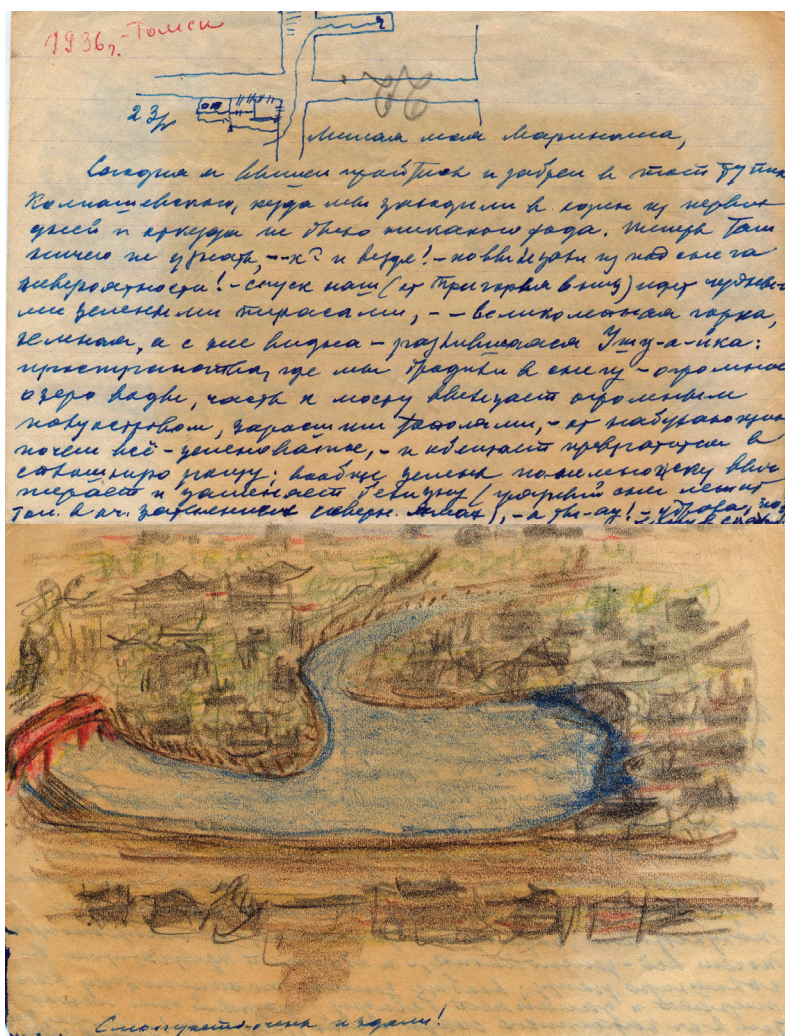 1936г. - Томск
23/
Милая моя Мариноша,
Сегодня я вышел пройтись и забрел в тот тупик
Колпашевского, куда мы заходили в один из первых
дней и откуда не было никакого хода. Теперь там
ничего не узнать, и везде! - из под снега
невероятности! - спуск наш (от пригорья вниз) идет
ми зелеными терасами, - - великолепная горка,
земная, а с нее видна - разлившаяся Ушу-а-йка:
пространства, где мы бродили в снегу - огромное
озеро воды, часть к мосту огромным
полуостровом, заросшим тополями, - от набухающих
почек всё - зеленоватое, - и обещает превратиться в
рощу; вообще зелень понемножку
и заменяет белизну (снег лежит
в оч. северн. ямах), - а ты - ау! -
Смотреть очень издали!